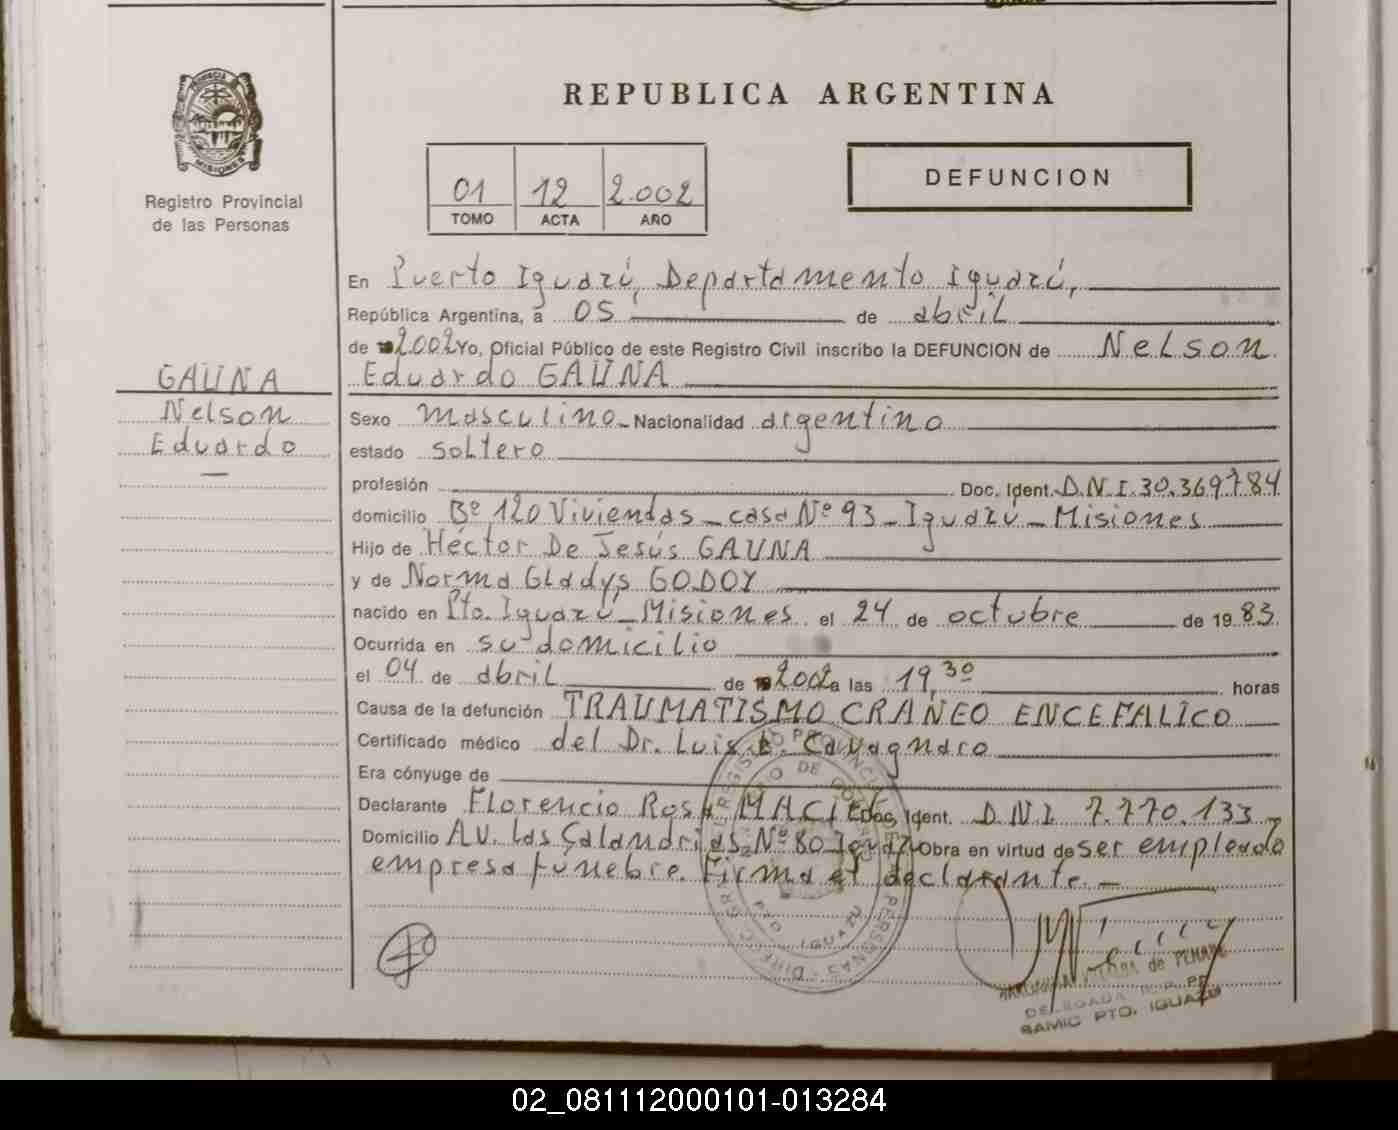 REPUBLICA ARGENTINA
PROVINCIA DE MISIONES
Registro Provincial
de las Personas
01 12 2.002
TOMO ACTA AÑO
DEFUNCION
En Puerto Iguazú, Departamento Iguazú,
República Argentina, a 05 de abril
de 2002 Yo, Oficial Público de este Registro Civil inscribo la DEFUNCION de Nelson
Eduardo GAUNA
GAUNA
Nelson
Eduardo
Sexo masculino Nacionalidad argentino
estado soltero
profesión Doc. Ident. D.N.I. 30.369.784
domicilio Bº 120 Viviendas - casa Nº 93 - Iguazú - Misiones
Hijo de Héctor De Jesús GAUNA
y de Norma Gladys GODOY
nacido en Pto. Iguazú - Misiones el 24 de octubre de 1983
Ocurrida en su domicilio
el 04 de abril de 2002 a las 19,30 horas
Causa de la defunción TRAUMATISMO CRANEO ENCEFALICO
Certificado médico del Dr. Luis E. Cavagnaro
Era cónyuge de
Declarante Florencio Rosa MACIEL Doc. Ident. D.N.I. 7.770.133
Domicilio AV. Las Calandrias Nº 80 Iguazú Obra en virtud de ser empleado
empresa fúnebre. Firma el declarante. -
DELEGADA R. P. PP.
SAMIC PTO. IGUAZU
02_081112000101-013284